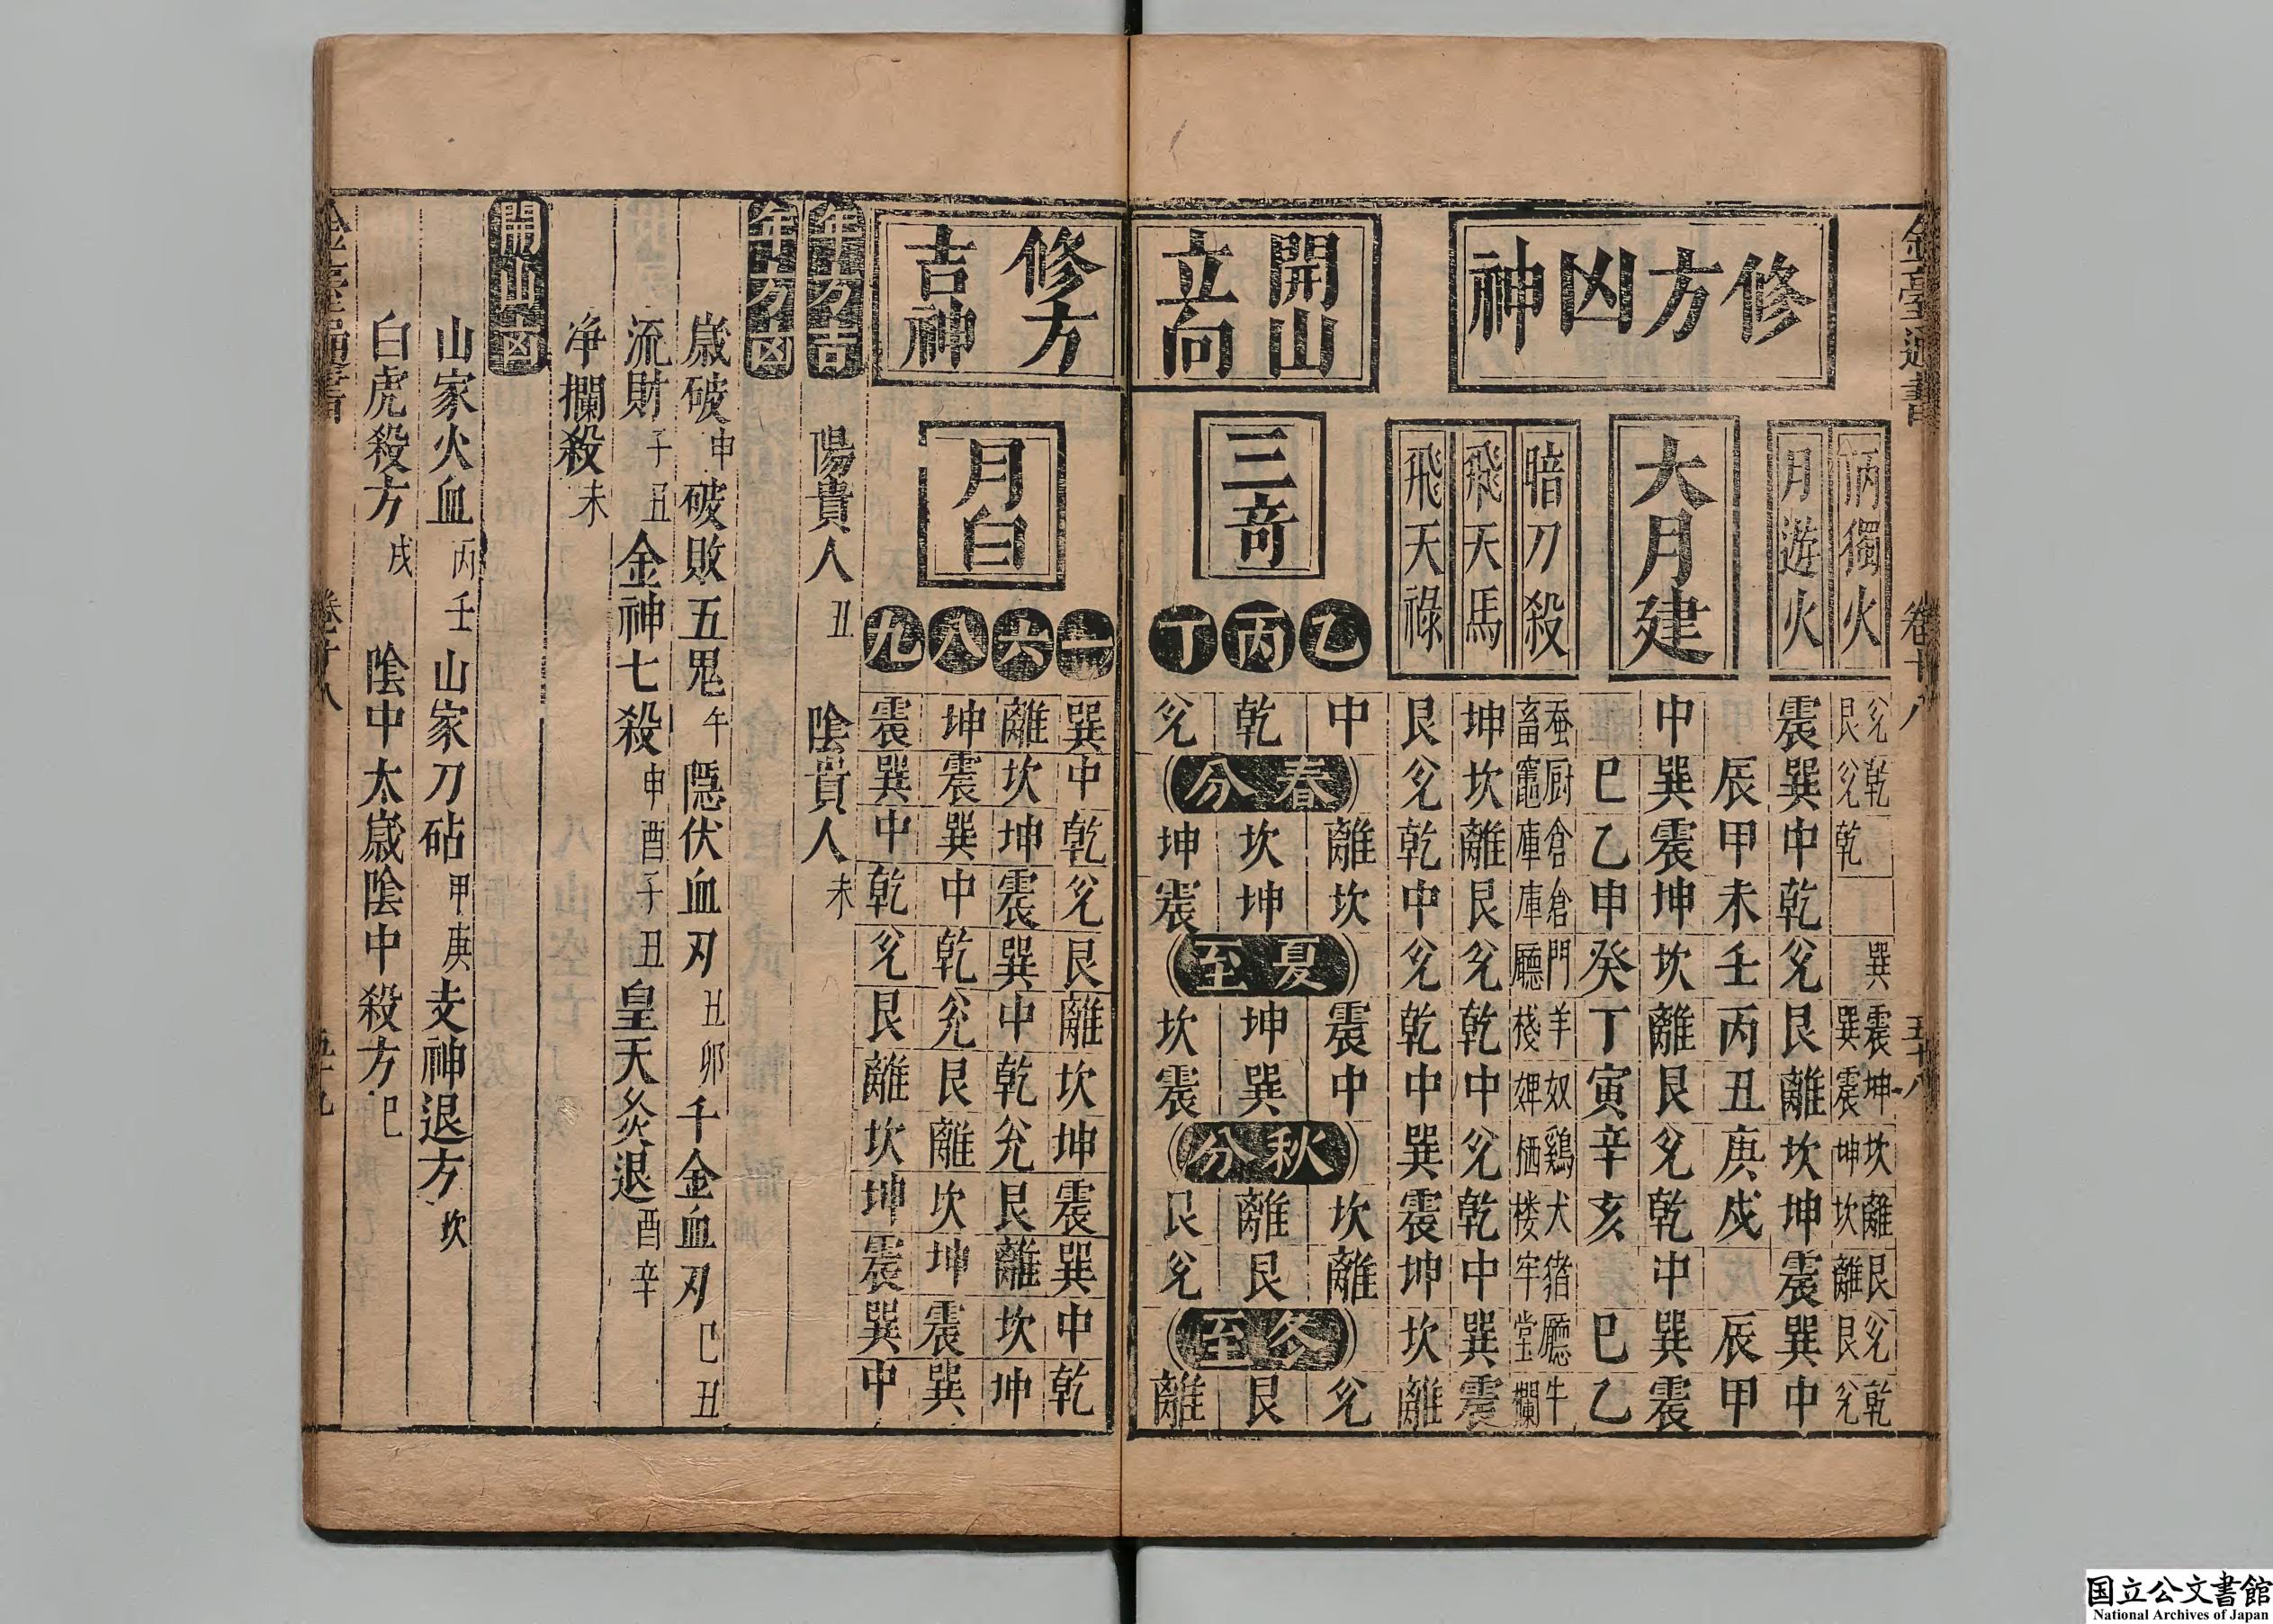 卷十八
五十八
修方凶神
丙獨火
兊艮
乾兊
乾
巽
震巽
坤震
坎坤
離坎
艮離
兊艮
乾兊
月遊火
震巽中乾兊艮離坎坤震巽中
大月建
辰甲未壬丙丑庚戌辰甲
中巽震坤坎離艮兊乾中巽震
巳乙申癸丁寅辛亥巳乙
暗刀殺
蚕畜
厨竈
倉庫
倉庫
門廳
羊棧
奴婢
鷄栖
犬楼
猪牢
廳堂
牛欄
飛天馬
坤坎離艮兊乾中兊乾中巽震
飛天祿
艮兊乾中兊乾中巽震坤坎離
開山
立向
修方
吉神
三竒
乙
丙
丁
中乾兊
春分
離坎坤
坎坤震
夏至
震坤坎
中巽震
秋分
坎離艮
離艮兊
冬至
兊艮離
月白
一
巽中乾兊艮離坎坤震巽中乾
六
離坎坤震巽中乾兊艮離坎坤
八
坤震巽中乾兊艮離坎坤震巽
九
震巽中乾兊艮離坎坤震巽中
年方吉
陽貴人 丑 陰貴人 未
年方凶
歲破 申 破敗五鬼 午 隱伏血刃 丑 卯 千金血刃 巳 丑
流財 子 丑 金神七殺 申 酉 子 丑 皇天炙退 酉 辛
净攔殺 未
開山凶
山家火血 丙 壬 山家刀砧 甲 庚 支神退方 坎
白虎殺方 戌 陰中太歲陰中殺方 巳
卷十八
五十九
国立公文書館
National Archives of Japan